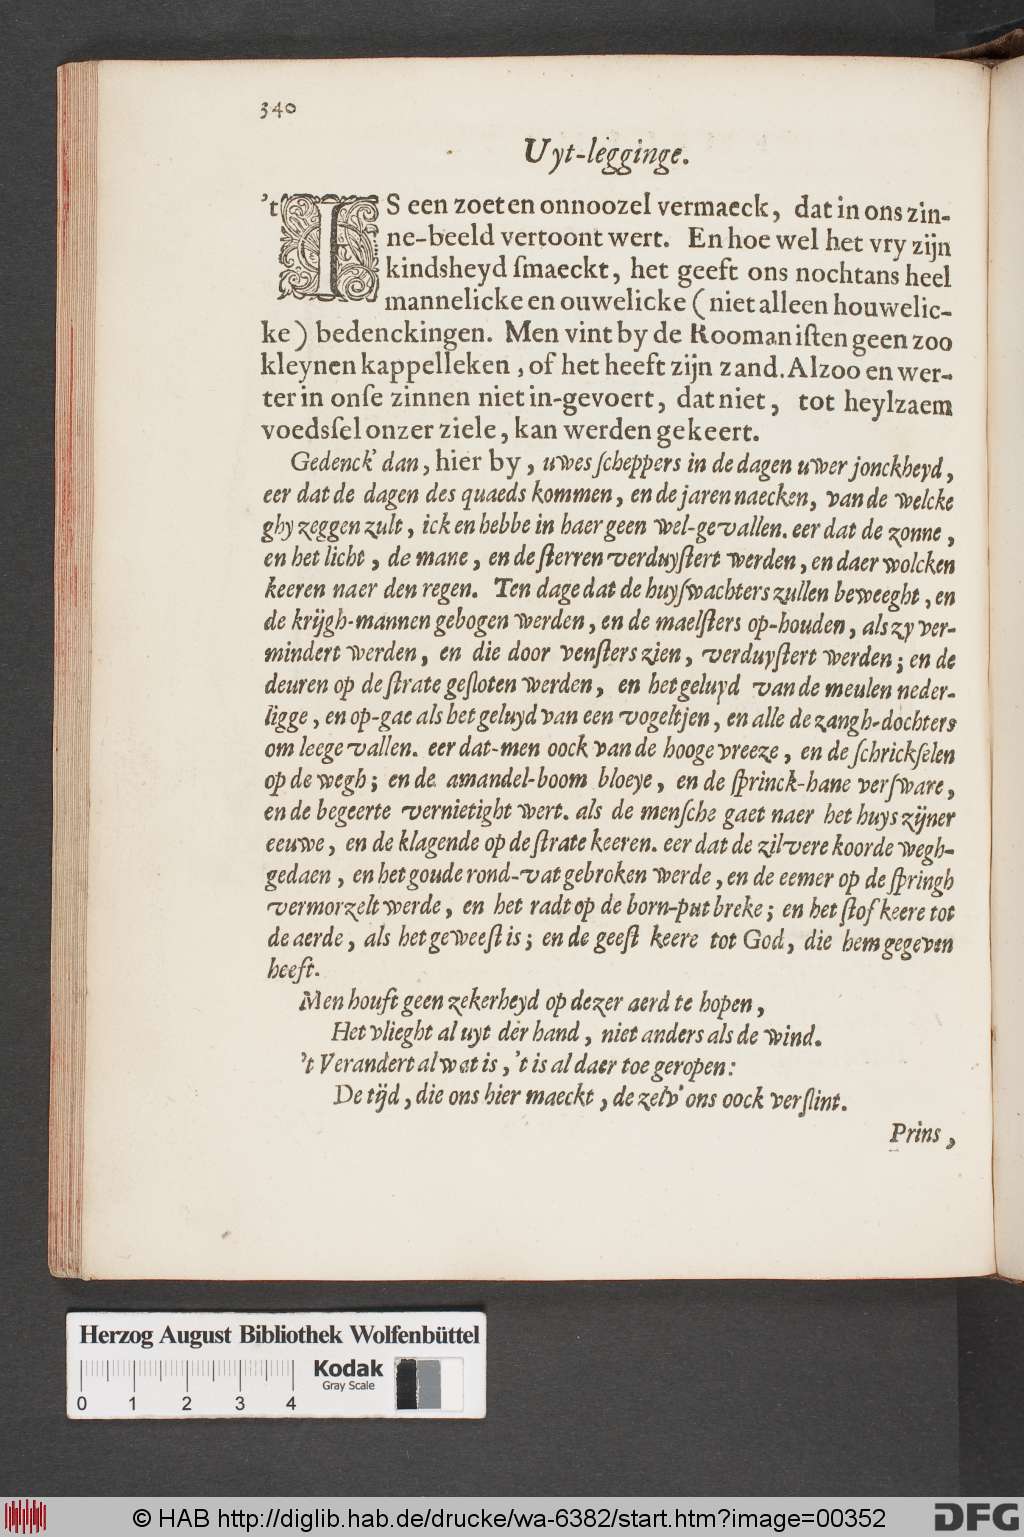 340
Uyt-legginge.
'tIS een zoet en onnoozel vermaeck, dat in ons zin-
ne-beeld vertoont wert. En hoe wel het vry zijn
kindsheyd ſmaeckt, het geeft ons nochtans heel
mannelicke en ouwelicke (niet alleen houwelic-
ke) bedenckingen. Men vint by de Roomaniſten geen zoo
kleynen kappelleken, of het heeft zijn zand. Alzoo en wer-
ter in onſe zinnen niet in-gevoert, dat niet, tot heylzaem
voedsſel onzer ziele, kan werden gekeert.
Gedenck' dan, hier by, uwes ſcheppers in de dagen uwer jonckheyd,
eer dat de dagen des quaeds kommen, en de jaren naecken, van de welcke
ghy zeggen zult, ick en hebbe in haer geen wel-gevallen. eer dat de zonne,
en het licht, de mane, en de ſterren verduyſtert werden, en daer wolcken
keeren naer den regen. Ten dage dat de huyſwachters zullen beweeght, en
de krijgh-mannen gebogen werden, en de maelſters op-houden, als zy ver-
mindert werden, en die door venſters zien, verduyſtert werden; en de
deuren op de ſtrate geſloten werden, en het geluyd van de meulen neder-
ligge, en op-gae als het geluyd van een vogeltjen, en alle de zangh-dochters
om leege vallen. eer dat-men oock van de hooge vreeze, en de ſchrickſelen
op de wegh; en de amandel-boom bloeye, en de ſprinck-hane verſware,
en de begeerte vernietight wert. als de menſche gaet naer het huys zijner
eeuwe, en de klagende op de ſtrate keeren. eer dat de zilvere koorde wegh-
gedaen, en het goude rond-vat gebroken werde, en de eemer op de ſpringh
vermorzelt werde, en het radt op de born-put breke; en het ſtof keere tot
de aerde, als het geweeſt is; en de geeſt keere tot God, die hem gegeven
heeft.
Men houft geen zekerheyd op dezer aerd te hopen,
Het vlieght al uyt der hand, niet anders als de wind.
't Verandert al wat is, 't is al daer toe geropen:
De tijd, die ons hier maeckt, de zelv' ons oock verſlint.
Prins,
Herzog August Bibliothek Wolfenbüttel
Kodak
Gray Scale
0 1 2 3 4
© HAB http://diglib.hab.de/drucke/wa-6382/start.htm?image=00352
DFG